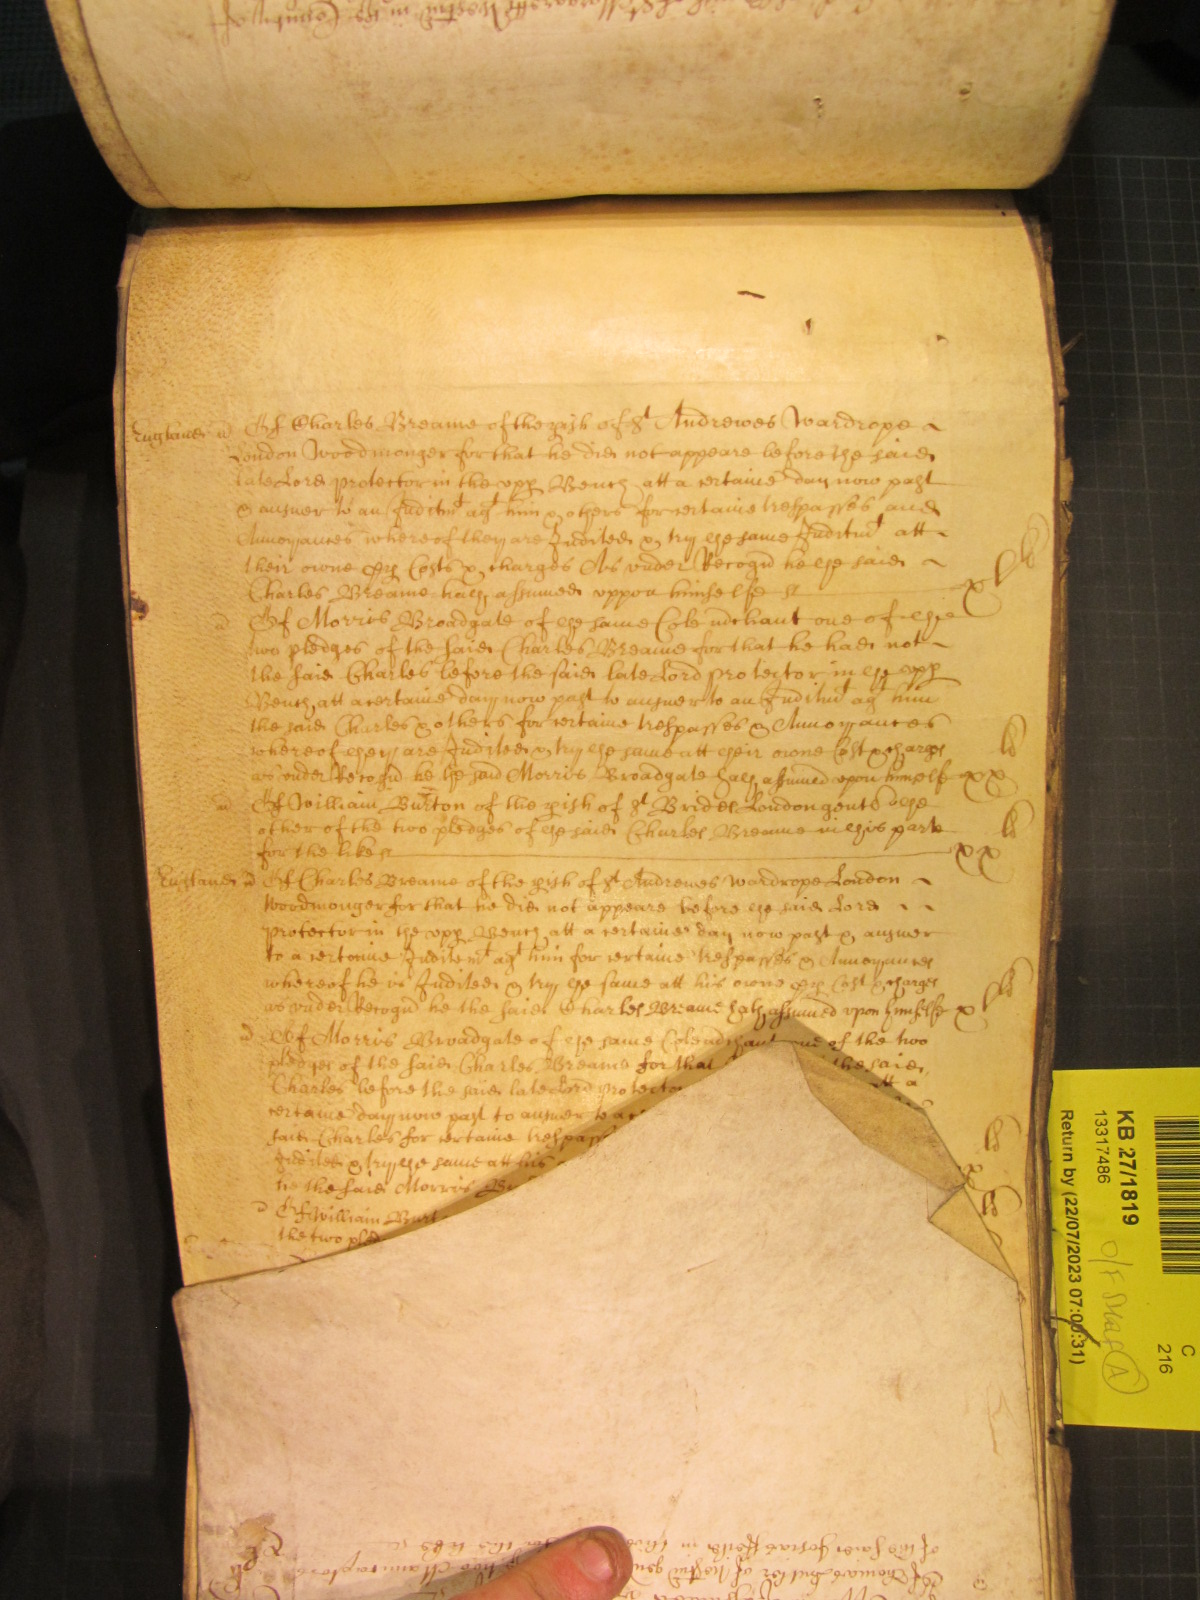 England ss Of Charles Breame of the pish of St Andrewes Wardrope
London Woodmonger for that he did not appeare before the said
late Lord protector in the upp Bench att a certaine day now past
& answer to an Inditmt agt him & others for certaine trespasses and
Annoyances whereof they are Indited & try the same Inditmt att
their owne pp Costs & charges As under Recogn he the said
Charles Breame hath assumed uppon himselfe xl li
ss Of Morris Broadgate of the same Cole mchant one of the
two pledges of the said Charles Breame for that he had not
the said Charles before the said late Lord protector in the upp
Bench att a certaine day now past to answer to an Inditmt agt him
the said Charles & others for certaine trespasses & Annoyances
whereof they are Indited & try the same att their owne Cost & charges
as under Recogn he the said Morris Broadgate hath assumed upon himselfe xx li
ss Of William Burton of the pish of St Brides London gent the
other of the two pledges of the said Charles Breame in this parte
for the like xx li
England ss Of Charles Breame of the pish of St Andrewes Wardrope London
Woodmonger for that he did not appeare before the said Lord
protector in the upp Bench att a certaine day now past & answer
to a certaine Inditemt agt him for certaine trespasses & Annoyances
whereof he is Indited & try the same att his owne pp Cost & charges
as under Recogn he the said Charles Breame hath assumed upon himselfe xl li
ss Of Morris Broadgate of the same Cole mchant one of the two
pledges of the said Charles Breame for that the said
Charles before the said late Lord protector att a
certaine day now past to answer to a
said Charles for certaine trespass
Indited & try the same att his li
he the said Morris
ss Of William Burt li
the two pled
KB 27/1819
13317486
Return by (22/07/2023 07:00:31)
C
216
A